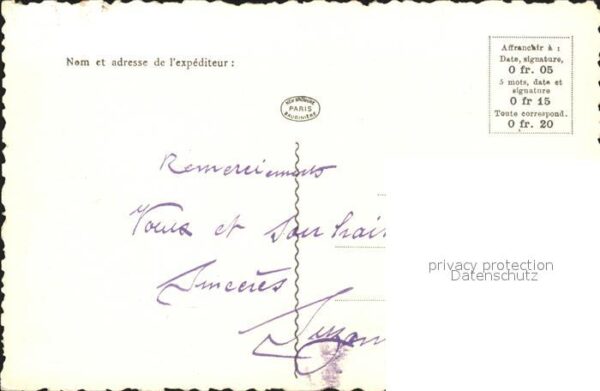 Nom et adresse de l'expéditeur :
Affranchir à :
Date, signature,
0 fr. 05
5 mots, date et
signature
0 fr 15
Toute correspond.
0 fr. 20
PARIS
Remerciements
Voeux et Souhai
Sincères
privacy protection
Datenschutz